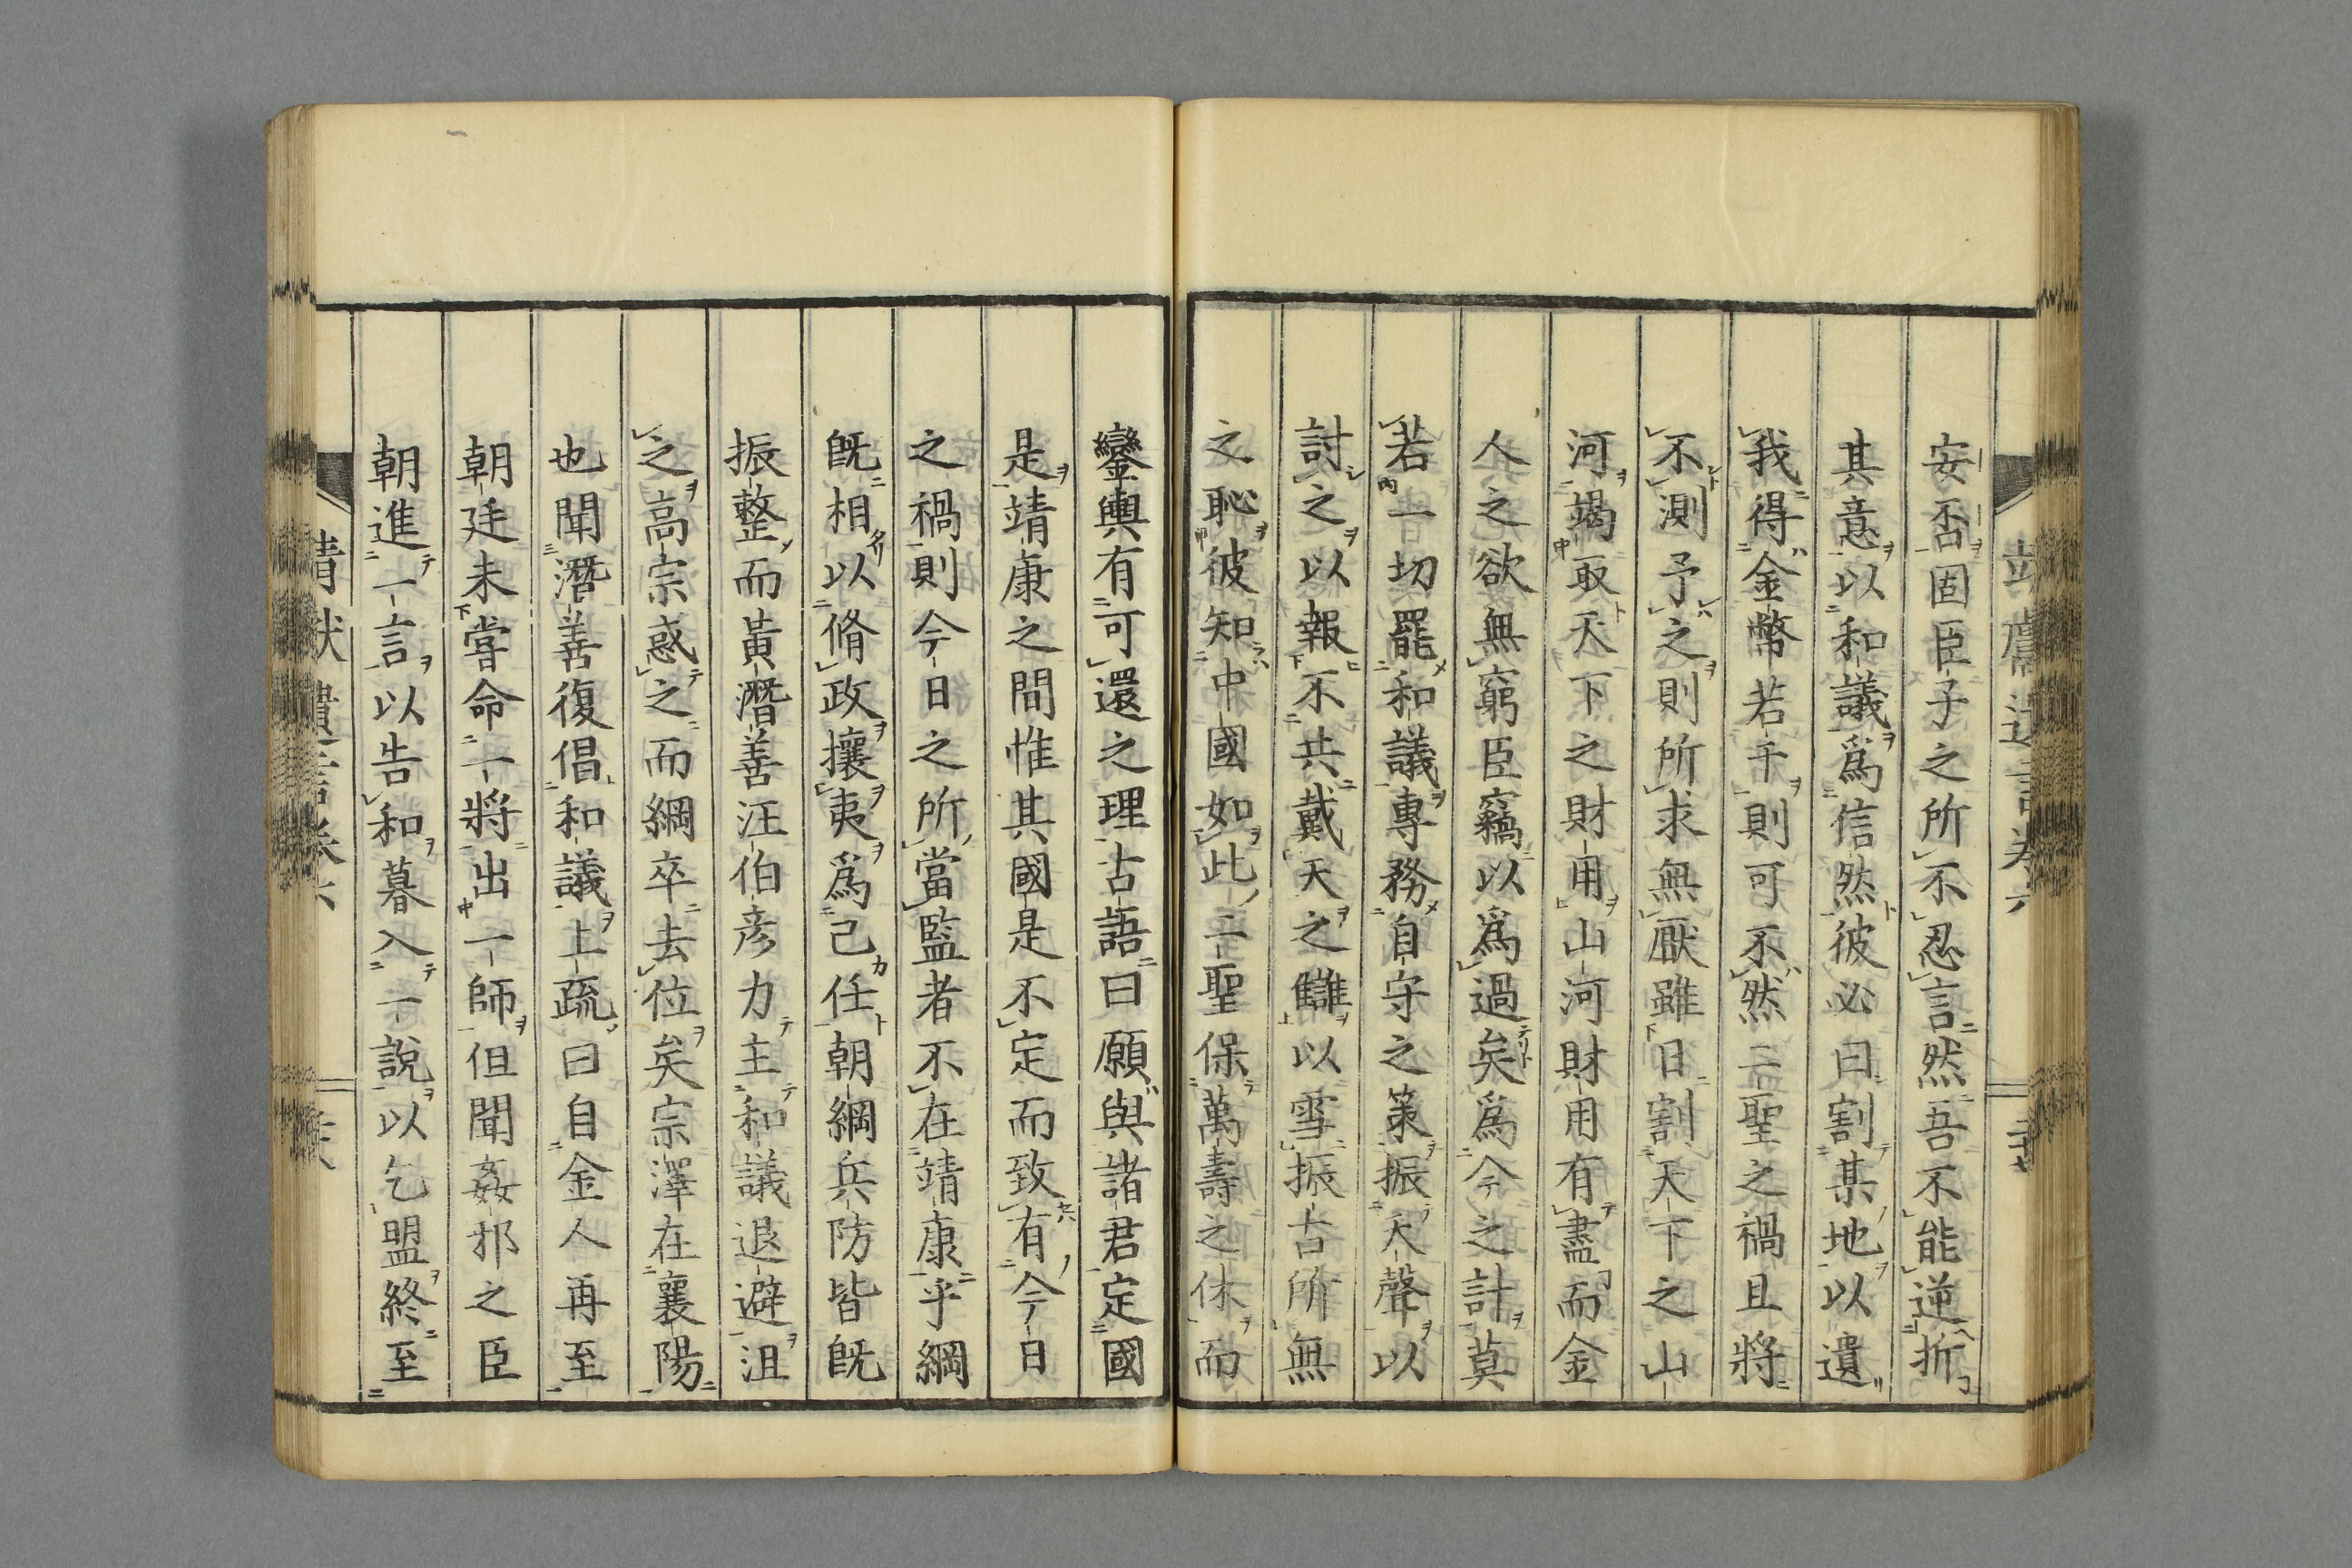 安否固臣子之所不忍言然吾不能逆折
其意以和議爲信然彼必曰割某地以遺
我得金幣若干則可不然二聖之禍且將
不測予之則所求無厭雖日割天下之山
河竭取天下之財用山河財用有盡而金
人之欲無窮臣竊以爲過矣爲今之計莫
若一切罷和議專務自守之策振天聲以
討之以報不共戴天之讎以雪振古所無
之恥彼知中國如此二聖保萬壽之休而
鑾輿有可還之理古語曰願與諸君定國
是靖康之間惟其國是不定而致有今日
之禍則今日之所當監者不在靖康乎綱
既相以脩政攘夷爲己任朝綱兵防皆既
振整而黃潛善汪伯彥力主和議退避沮
之高宗惑之而綱卒去位矣宗澤在襄陽
也聞潛善復倡和議上疏曰自金人再至
朝廷未嘗命一將出一師但聞姦邪之臣
朝進一言以告和暮入一說以乞盟終至
靖獻遺言卷六